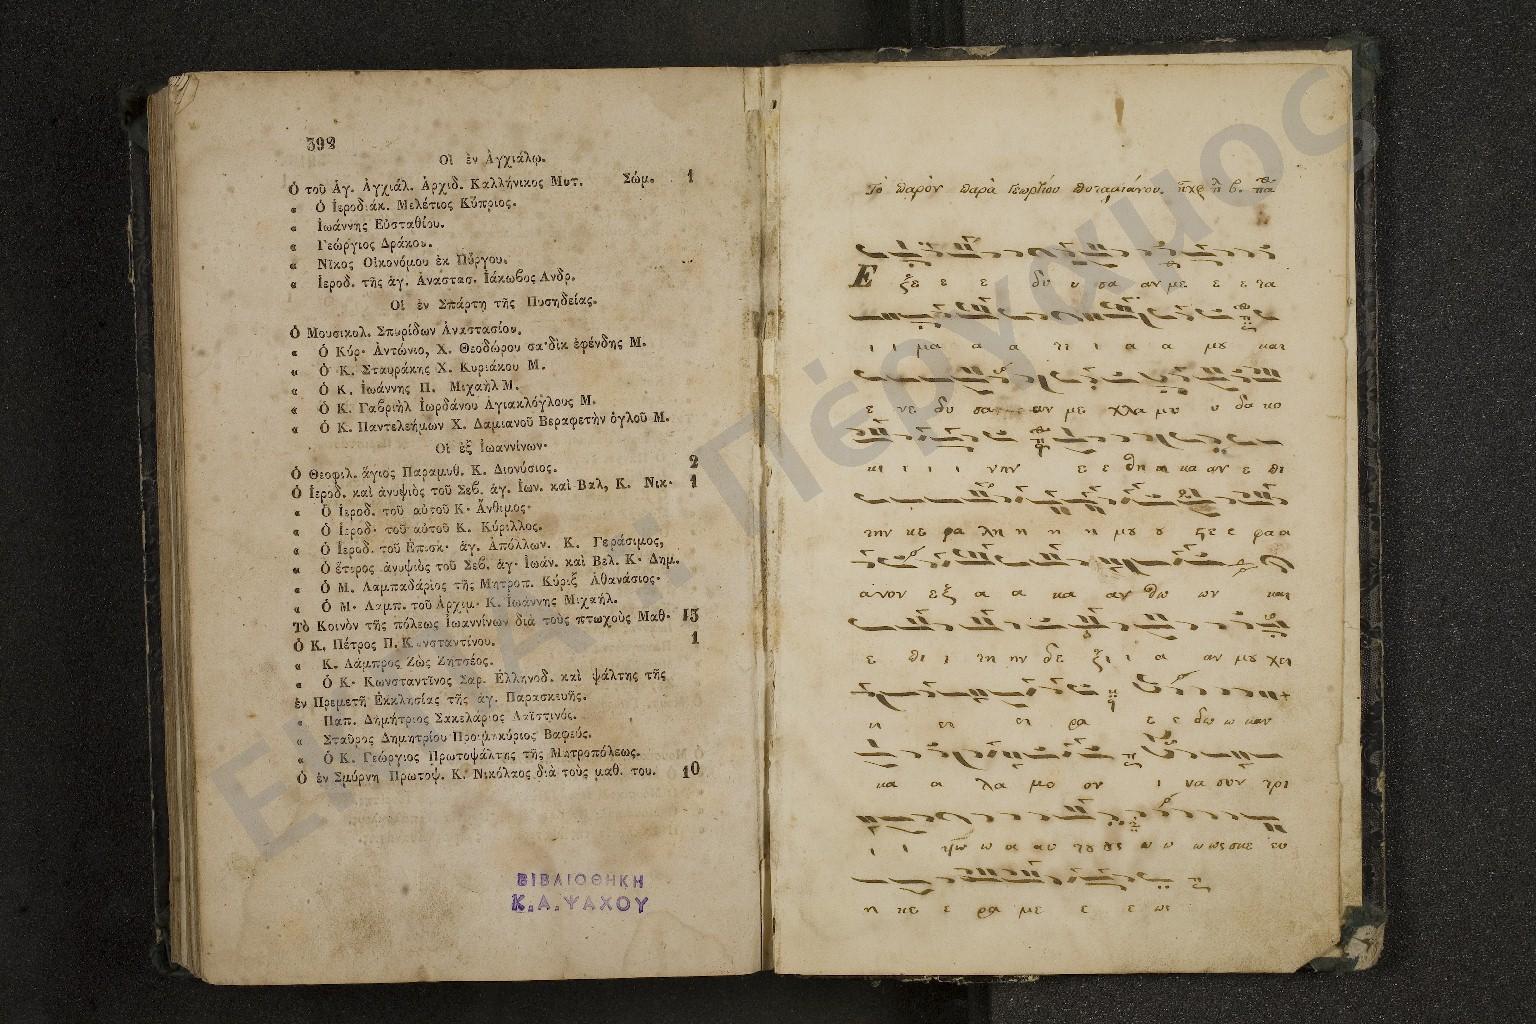 392
Οἱ ἐν Ἀγχιάλῳ.
Ὁ τοῦ Ἁγ. Ἀγχιάλ. Ἀρχιδ. Καλλήνικος Μυτ. Σώμ. 1
« Ὁ Ἱεροδιάκ. Μελέτιος Κύπριος.
« Ἰωάννης Εὐσταθίου.
« Γεώργιος Δράκου.
« Νῖκος Οἰκονόμου ἐκ Πύργου.
« Ἱεροδ. τῆς ἁγ. Ἀναστασ. Ἰάκωβος Ανδρ.
Οἱ ἐν Σπάρτῃ τῆς Πυσηδείας.
Ὁ Μουσικολ. Σπυρίδων Ἀναστασίου.
« Ὁ Κύρ· Ἀντώνιο, Χ. Θεοδώρου σα'δὶκ ἐφένδης Μ.
« Ὁ Κ. Σταυράκης Χ. Κυριάκου Μ.
« Ὁ Κ. Ἰωάννης Π. Μιχαὴλ Μ.
« Ὁ Κ. Γαβριὴλ Ἰωρδάνου Αγιακλόγλους Μ.
« Ὁ Κ. Παντελεήμων Χ. Δαμιανοῦ Βεραφετὴν ὀγλοῦ Μ.
Οἱ ἐξ Ἰωαννίνων·
Ὁ Θεοφιλ. ἅγιος Παραμυθ. Κ. Διονύσιος. 2
Ὁ Ἱεροδ. καὶ ἀνυψιὸς τοῦ Σεβ. ἁγ. Ἰων. καὶ Βαλ, Κ. Νικ· 1
« Ὁ Ἱεροδ. τοῦ αὐτοῦ Κ· Ἄνθιμος·
« Ὁ Ἱεροδ· τοῦ αὐτοῦ Κ. Κύριλλος.
« Ὁ Ἱεροδ. τοῦ Ἐπισκ· ἁγ. Ἀπόλλων. Κ. Γεράσιμος,
« Ὁ ἕτερος ἀνυψιὸς τοῦ Σεβ. ἁγ· Ἰωάν. καὶ Βελ. Κ· Δημ.
« Ὁ Μ. Λαμπαδάριος τῆς Μητροπ. Κύριξ Ἀθανάσιος·
« Ὁ Μ· Λαμπ. τοῦ Ἀρχιμ· Κ. Ἰωάννης Μιχαήλ.
Τὸ Κοινὸν τῆς πόλεως Ἰωαννίνων διὰ τοὺς πτωχοὺς Μαθ· 15
Ὁ Κ. Πέτρος Π. Κωνσταντίνου. 1
« Κ. Λάμπρος Ζὼς Ζητσέος.
« Ὁ Κ· Κωνσταντῖνος Σαρ. Ἑλληνοδ. καὶ ψάλτης τῆς
ἐν Πρεμετῇ Ἐκκλησίας τῆς ἁγ. Παρασκευῆς.
« Παπ. Δημήτριος Σακελάριος Λαϊστινός.
« Σταῦρος Δημητρίου Βαφεύς.
« Ὁ Κ. Γεώργιος Πρωτοψάλτης τῆς Μητροπόλεως.
Ὁ ἐν Σμύρνῃ Πρωτοψ. Κ. Νικόλαος διὰ τοὺς μαθ. του. 10
ΒΙΒΛΙΟΘΗΚΗ
Κ. Α. ΨΑΧΟΥ
Τὸ παρὸν παρὰ Γεωργίου
Ε ξε ε ε δυ υ σα αν με ε ε τα
ι ι μα α α τι ι α α μου και
ε νε δυ σα αν με χλα μυ υ δα κο
κι ι ι ι νην ε ε θη η κα αν ε πι
την κε φα λη η η η μου ου ςε ε φα α
ανον εξ α α κα αν θω ων και
ε πι ι τη ην δε ξι ι α αν μου χει
ει ει ρα ε ε δω ω καν
κα α λα μο ον ι να συν τρι
ι ι ψω ω α αυ του ους ω ω ω ως σκε ευ
η κε ε ρα με ε ε ως